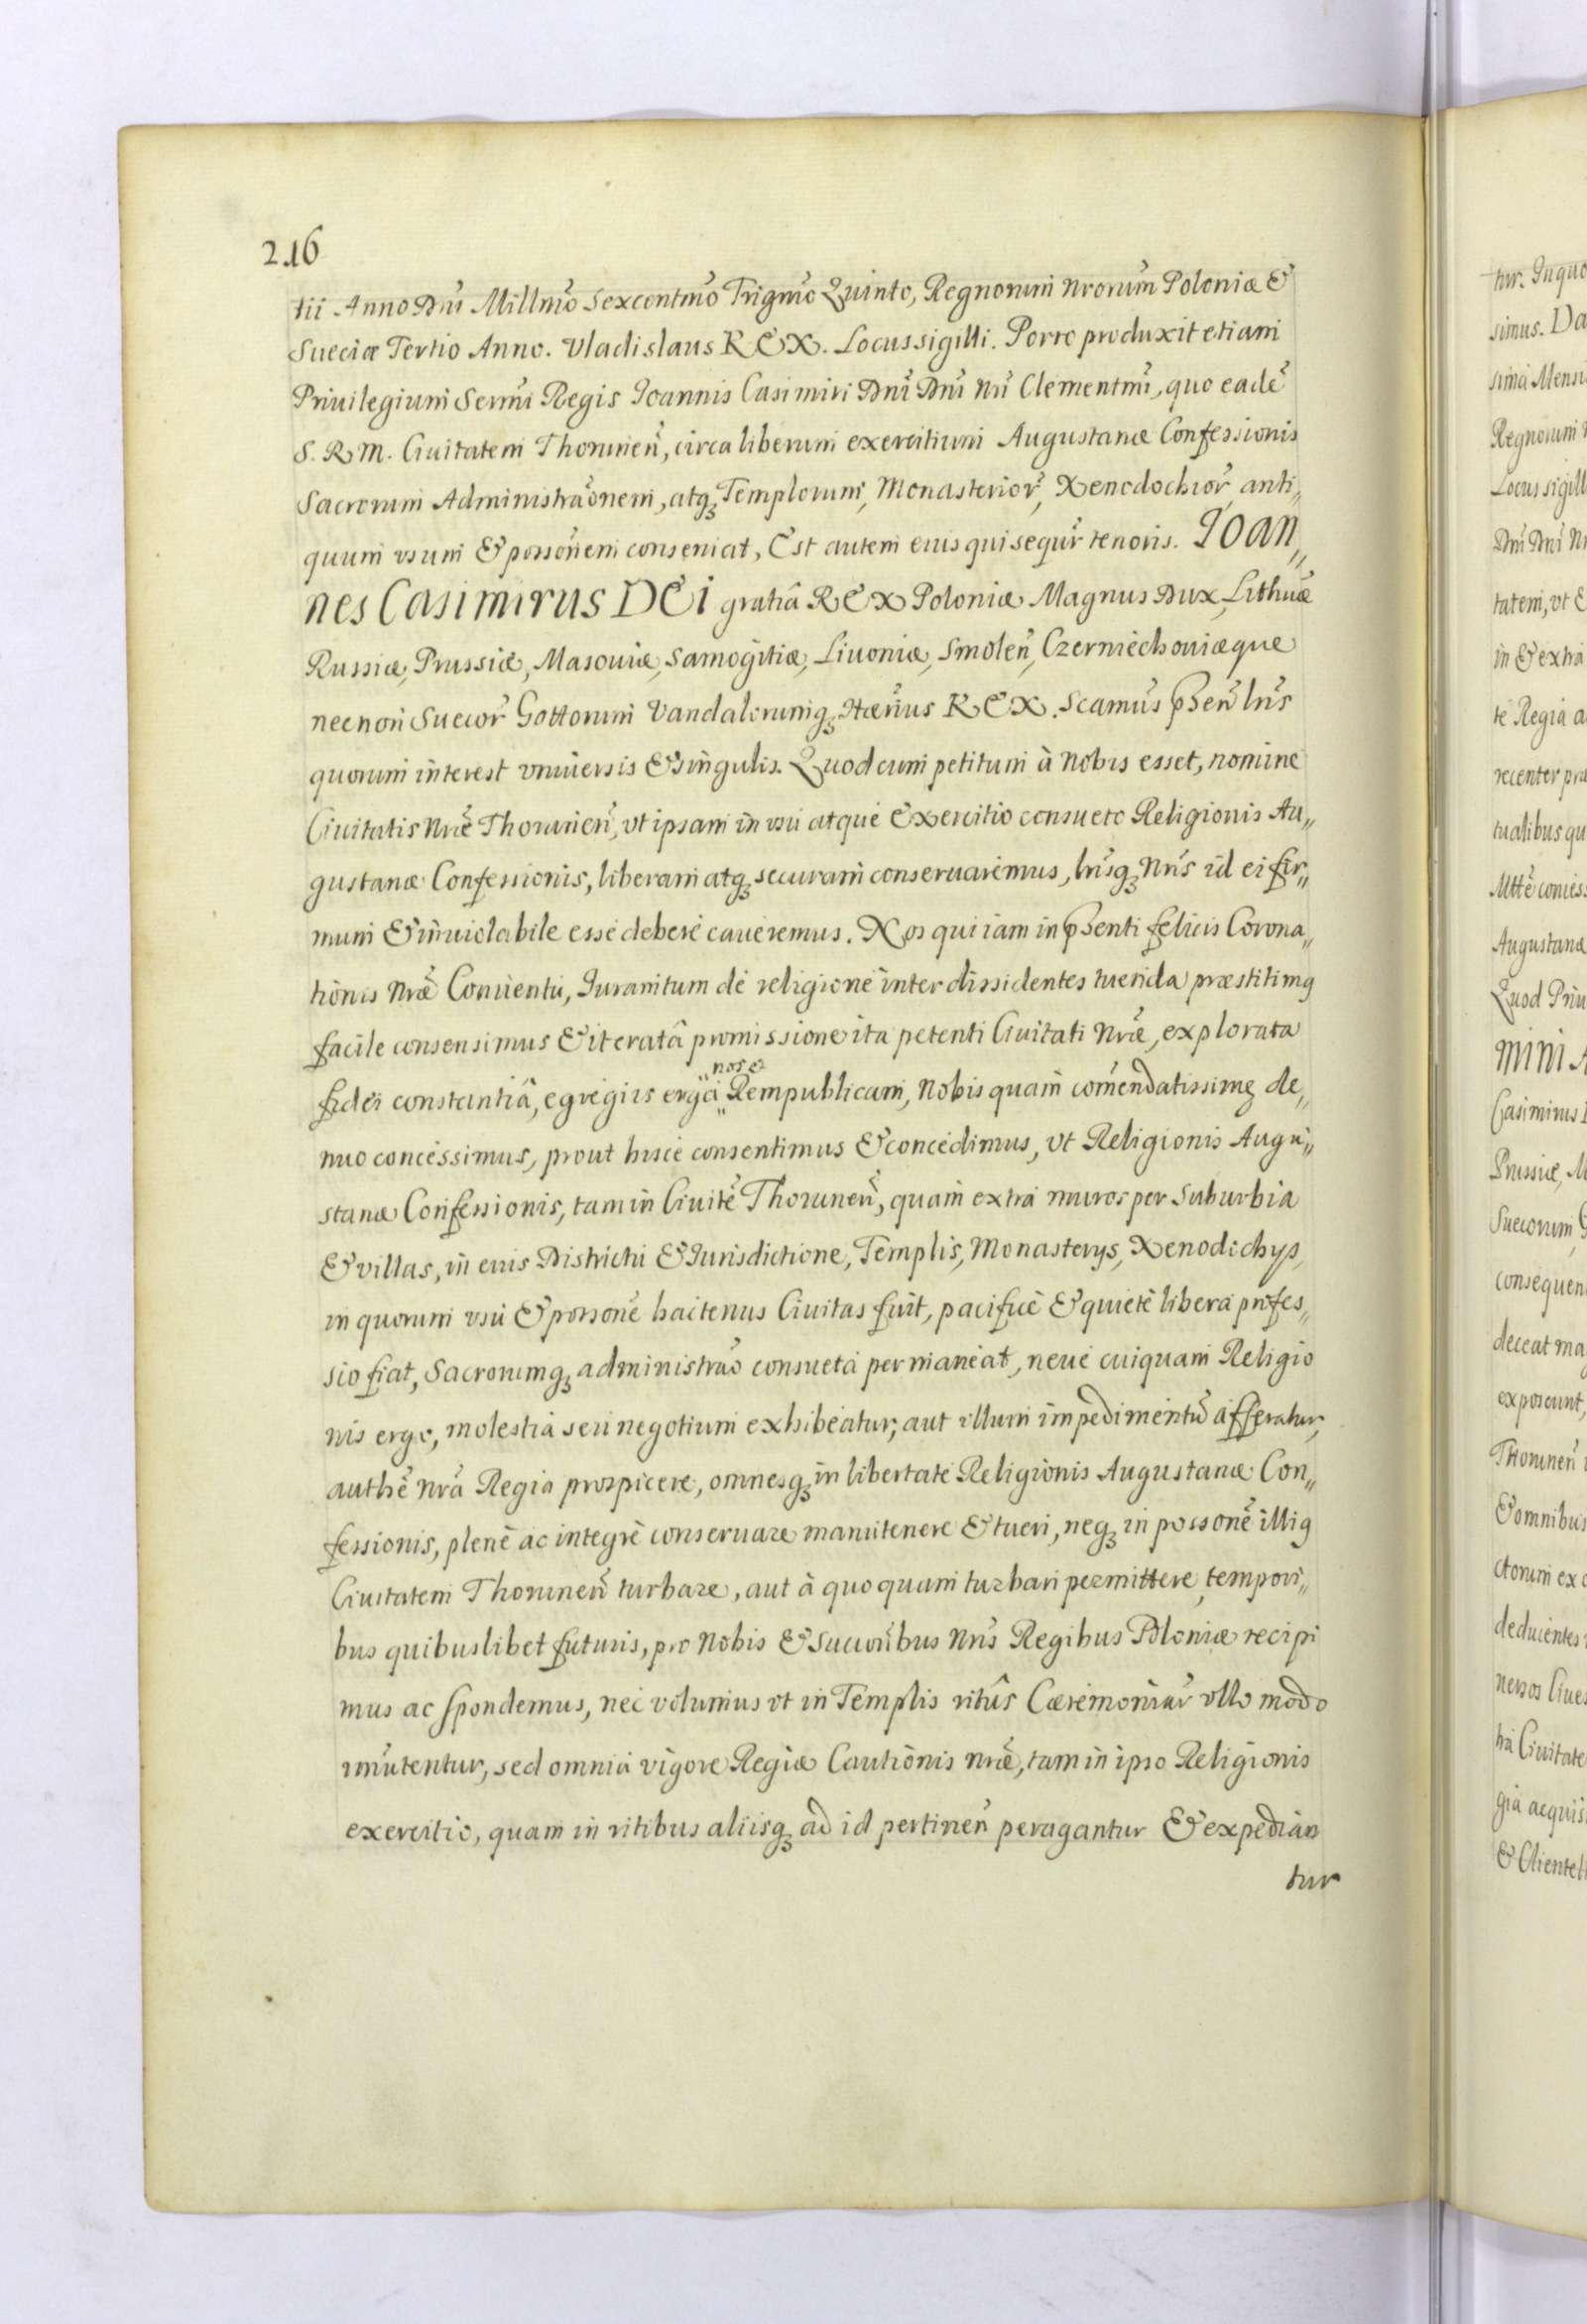 216
tii Anno Dni Millmo Sexcentmo Trigmo Quinto, Regnorum nrorum Poloniæ &
Sueciæ Tertio Anno. Vladislaus REX. Locus sigilli. Porro produxit etiam
Priuilegium Sermi Regis Ioannis Casimiri Dni Dni Ni Clementmi, quo eadē
S. R. M. Ciuitatem Thorunen, circa liberum exercitium Augustanæ Confessionis
Sacrorum Administraonem, atq₃ Templorum, Monasterior, Xenodochior anti„
quum vsum & possonem conseruat, Est autem euis qui sequr tenoris. IOAN„
nes Casimirus DEI gratiâ REX Poloniæ Magnus Dux, Lithuæ
Russiæ, Prussiæ, Masouiæ, Samogitiæ, Liuoniæ, Smolen, Czerniechouiæque
necnon Suecor Gottorum Vandalorumq₃ Hærius REX. Scamus pñsen lris
quorum interest vniuersis & singulis. Quod cum petitum à Nobis esset, nomine
Ciuitatis Nræ Thorunen, vt ipsam in vsu atque Exercitio consueto Religionis Au„
gustanæ Confessionis, liberam atq₃ securam conseruaremus, lrisq₃ Nris id ei fir„
mum & inuiolabile esse debere caueremus. Nos qui iam in pñsenti felicis Corona„
tionis Nræ Conuentu, Iuramtum de religione inter dissidentes tuenda præstitimq
facile consensimus & iteratâ promissione ita petenti Ciuitati Nræ, explorata
fidei constantiâ, egregiis erga „nos & Rempublicam, Nobis quam comendatissimę de„
nuo concessimus, prout hisce consentimus & concedimus, vt Religionis Augu„
stanæ Confessionis, tam in Ciuitē Thorunen, quam extra muros per Suburbia
& villas, in euis Districtu & Iurisdictione, Templis, Monasterys, Xenodichys,
in quorum vsu & possone hactenus Ciuitas fuit, pacifice & quiete libera profes„
sio fiat, Sacrorumq₃ administrao consueta permaneat, neue cuiquam Religio
nis ergo, molestia seu negotium exhibeatur, aut vllum impedimentū afferatur,
authē nrâ Regia prospicere, omnesq₃ in libertate Religionis Augustanæ Con„
fessionis, plenè ac integrè conseruare manutenere & tueri, neq₃ in possonē illiq
Ciuitatem Thorunen turbare, aut à quoquam turbari permittere, tempori„
bus quibuslibet futuris, pro Nobis & Succoribus Nris Regibus Poloniæ recipi
mus ac spondemus, nec volumus vt in Templis ritûs Cæremoniar vllo modo
imutentur, sed omnia vigore Regiæ Cautionis nræ, tam in ipso Religionis
exercitio, quam in ritibus aliisq₃ ad id pertinen peragantur & expedian
tur